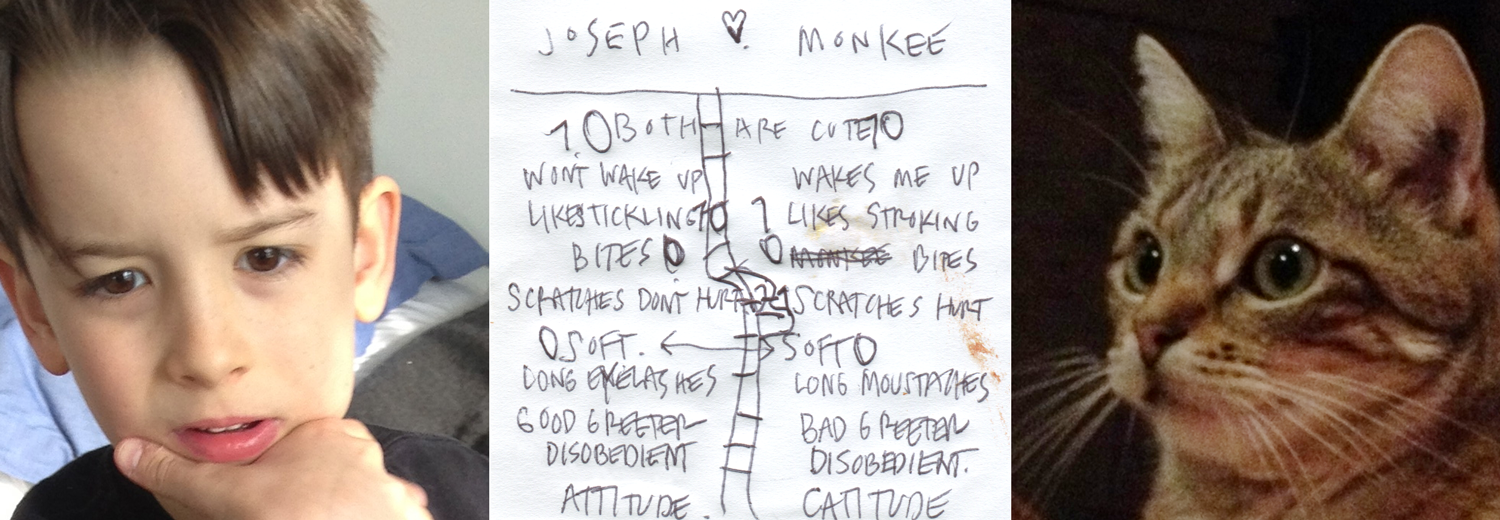 JOSEPH ♡ MONKEE
10 BOTH ARE CUTE 10
WONT WAKE UP WAKES ME UP
LIKES TICKLING 10 1 LIKES STROKING
BITES 0 0 MONKEE BITES
SCRATCHES DONT HURT SCRATCHES HURT
0 SOFT. ↔ SOFT 0
LONG EYELASHES LONG MOUSTACHES
GOOD GREETER BAD GREETER
DISOBEDIENT DISOBEDIENT.
ATTITUDE. CATITUDE